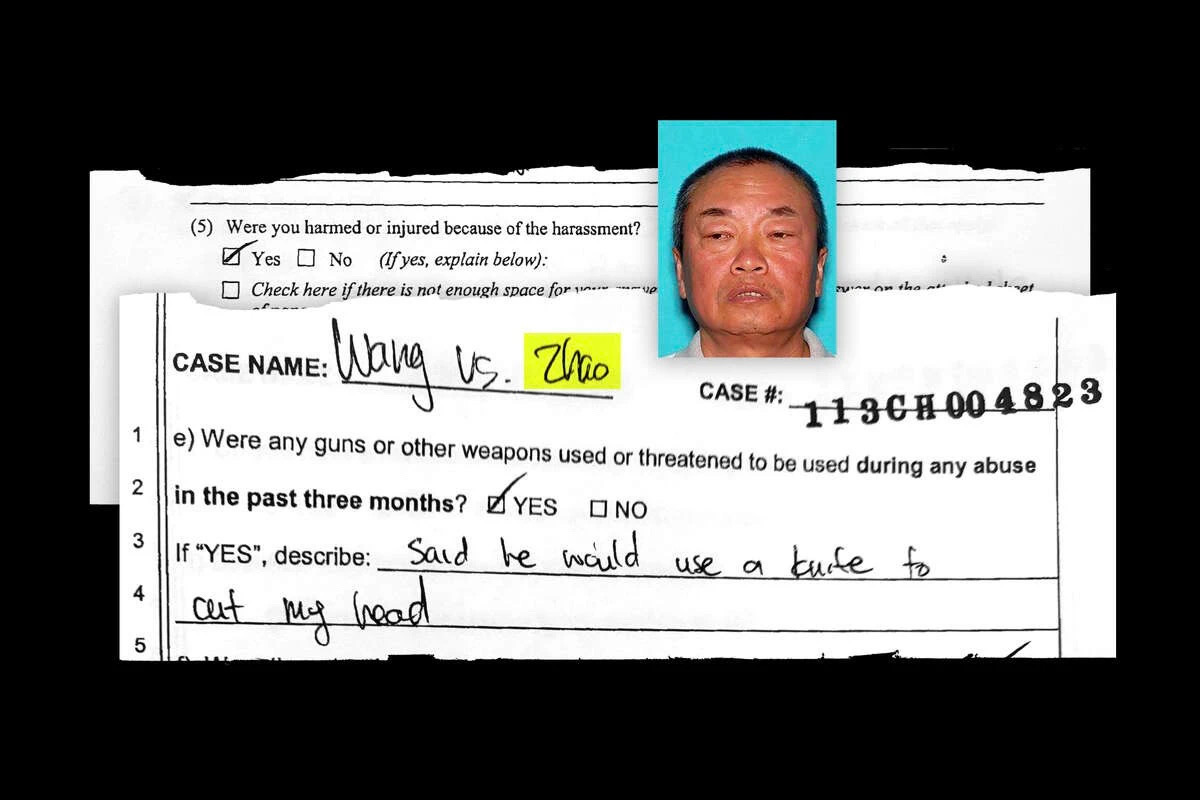 (5) Were you harmed or injured because of the harassment?
Yes No (If yes, explain below):
Check here if there is not enough space for your
sheet
CASE NAME: Wang vs. Zhao
CASE #: 113CH004823
1 e) Were any guns or other weapons used or threatened to be used during any abuse
2 in the past three months? YES NO
3 If "YES", describe: Said he would use a knife to
4 cut my head
5